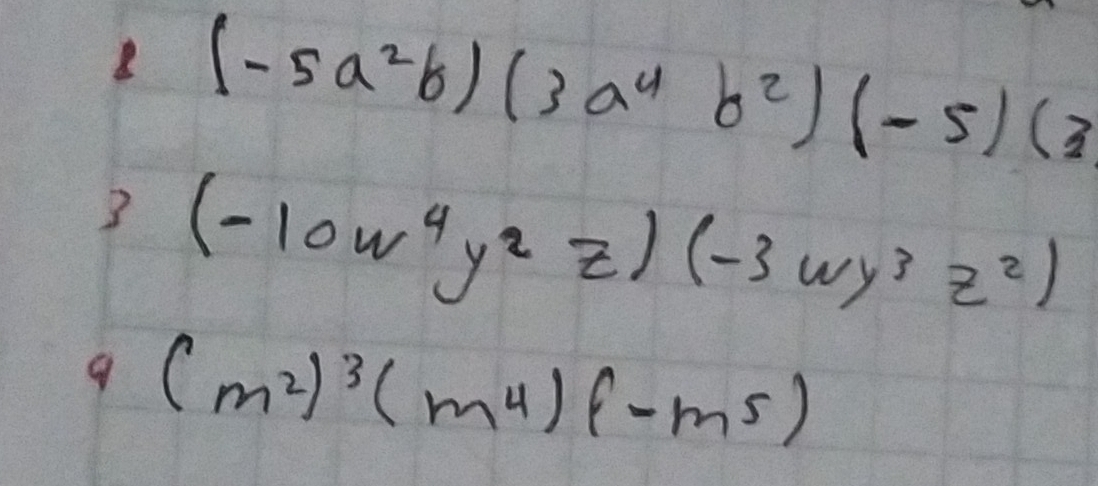 2 (-5a²b)(3a⁴ b²)(-5)(3
3 (-10w⁴y² z)(-3wy³ z²)
4 (m²)³(m⁴)(-m5)